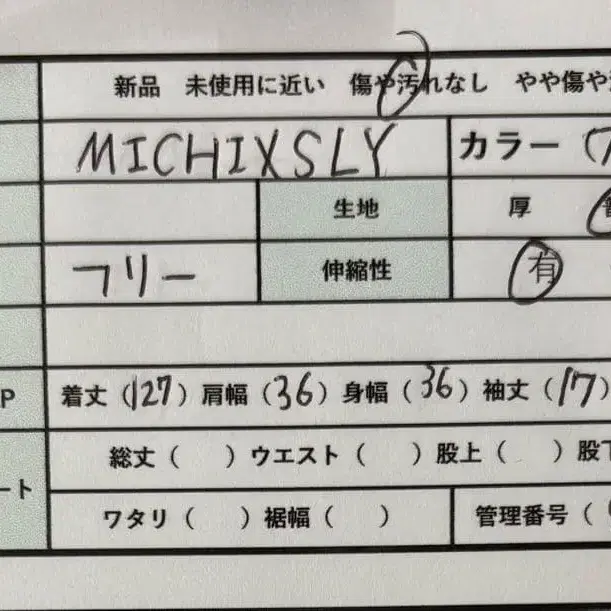 新品 未使用に近い 傷や汚れなし やや傷や
MICHIXSLY カラー（
生地 厚
フリー 伸縮性 有
P 着丈（127）肩幅（36）身幅（36）袖丈（17）
総丈（ ）ウエスト（ ）股上（ ）股下
ート
ワタリ（ ）裾幅（ ） 管理番号（